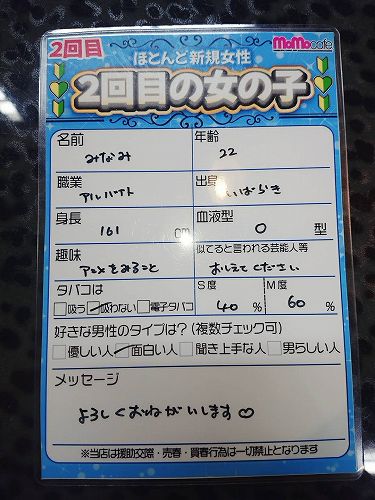 2回目
MoMocafe
ほとんど新規女性
2回目の女の子
名前
みなみ
年齢
22
職業
アルバイト
出身
いばらき
身長
161 cm
血液型
O 型
趣味
アニメをみること
似てると言われる芸能人等
おしえてください
タバコは
吸う 吸わない 電子タバコ
S度
40 %
M度
60 %
好きな男性のタイプは?(複数チェック可)
優しい人 面白い人 聞き上手な人 男らしい人
メッセージ
よろしくおねがいします♡
※当店は援助交際・売春・買春行為は一切禁止となります